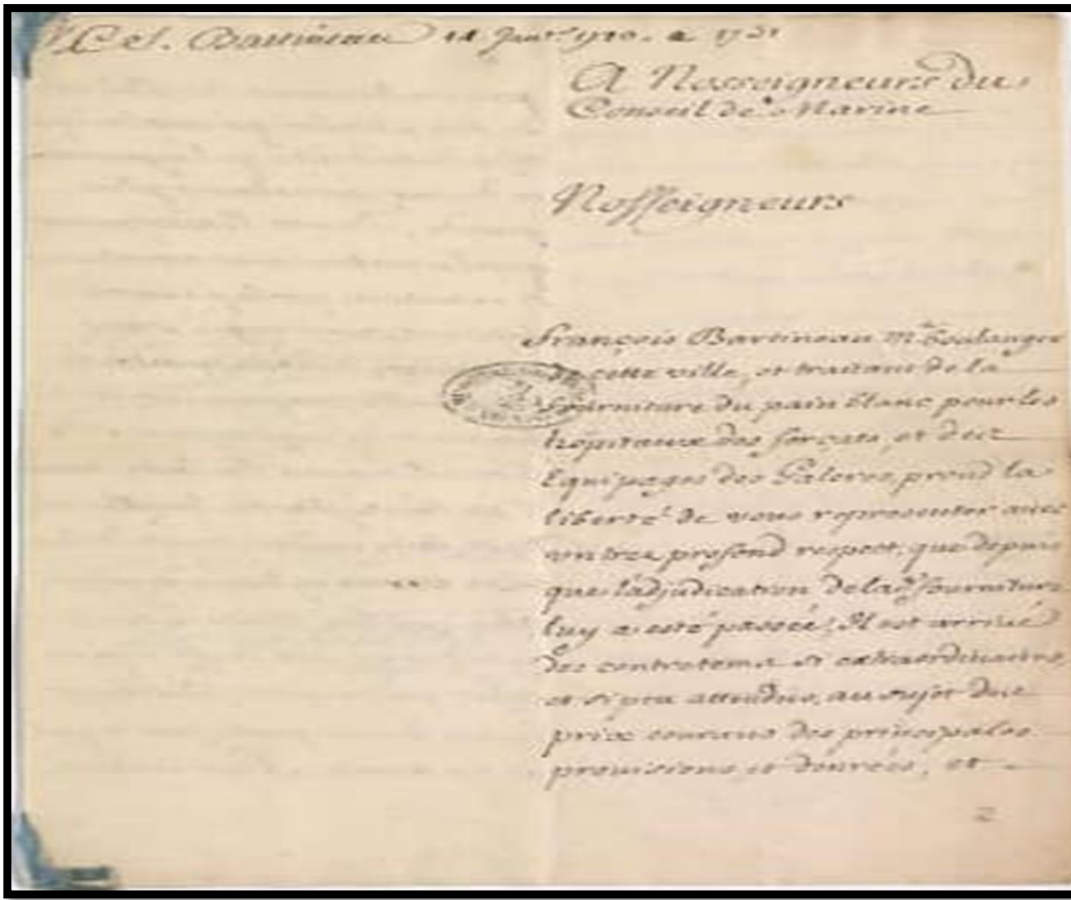 Bartineau 14 Janv. 1720. a 1721
A Nosseigneurs du
Conseil de Marine
Nosseigneurs
françois Bartineau m.e boulanger
de cette ville, et traitant de la
fourniture du pain blanc pour les
hopitaux des forçats, et des
Equipages des Galeres, prend la
liberté de vous representer avec
un tres profond respect, que depuis
que l'adjudication de lad. fourniture
luy a esté passée, Il est arrivé
des contretems si extraordinaires
et si peu attendus, au sujet du
prix courant des principales
provisions et denrées, et
2